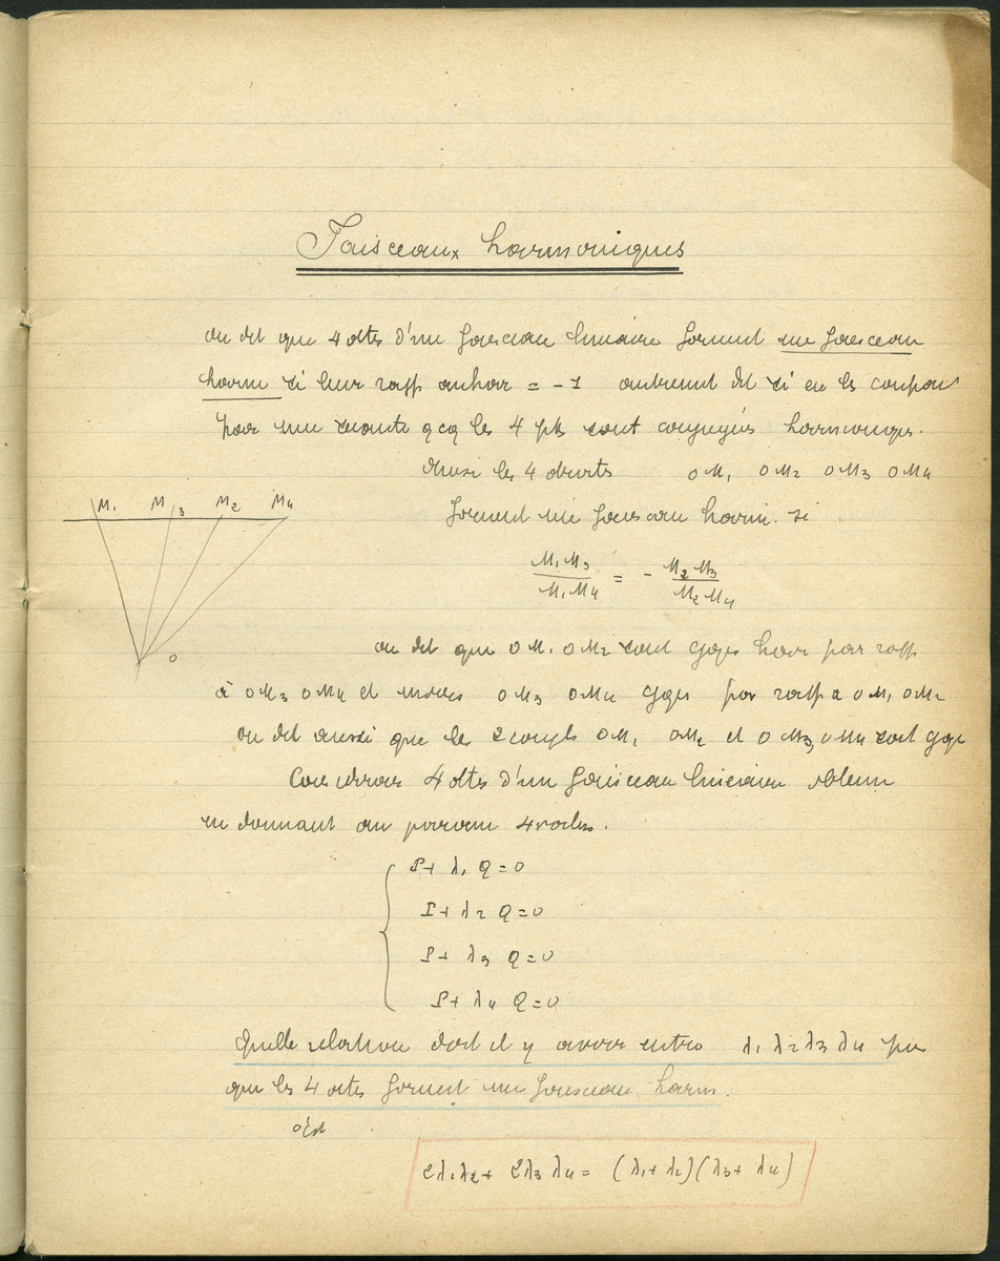 Faisceaux harmoniques
on dit que 4 dtes d'un faisceau linéaire forment un faisceau
harm si leur rapp anhar = -1 autrement dit si en les coupant
par une sécante qcq les 4 pts sont conjugués harmoniques.
Ainsi les 4 droites OM1 OM2 OM3 OM4
M1 M3 M2 M4
forment un faisceau harm. si
M1M3 / M1M4 = - M2M3 / M2M4
O
on dit que OM1 OM2 sont cjgés har par rapp
à OM3 OM4 et OM3 OM4 cjgés par rapp à OM1 OM2
on dit aussi que les 2 couples OM1 OM2 et OM3, OM4 sont cjgs
Considérons 4 dtes d'un faisceau linéaire obtenu
en donnant au param 4 vales.
P+ λ1 Q=0
P+ λ2 Q=0
P+ λ3 Q=0
P+ λ4 Q=0
Quelle relation doit il y avoir entre λ1 λ2 λ3 λ4 pr
que les 4 dtes forment un faisceau harm.
c'est
2λ1λ2+ 2λ3 λ4= (λ1+ λ2)(λ3+ λ4)